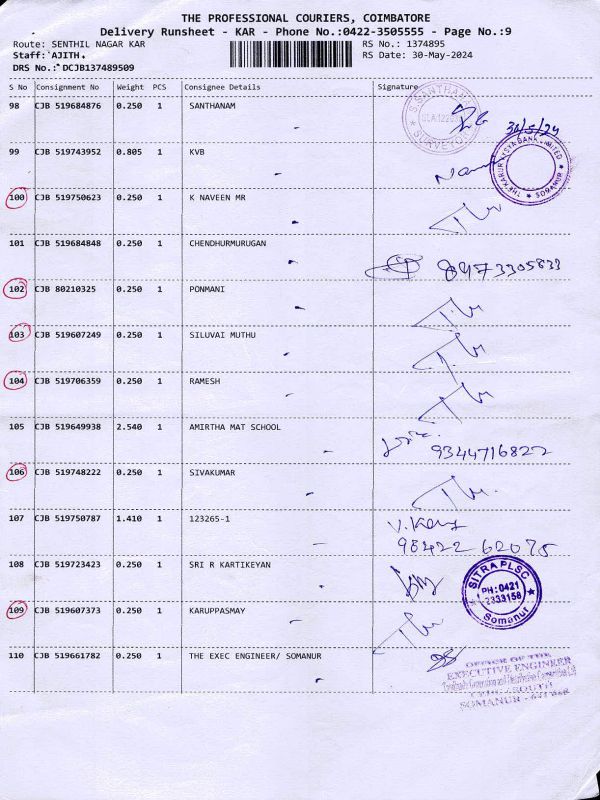 THE PROFESSIONAL COURIERS, COIMBATORE
Delivery Runsheet - KAR - Phone No.:0422-3505555 - Page No.:9
Route: SENTHIL NAGAR KAR RS No.: 1374895
Staff: AJITH RS Date: 30-May-2024
DRS No.: DCJB137489509
S No Consignment No Weight PCS Consignee Details Signature
98 CJB 519684876 0.250 1 SANTHANAM
S.SANTHANAM SURVEYOR
30/5/24
99 CJB 519743952 0.805 1 KVB
THE KARUR VYSYA BANK LIMITED SOMANUR
100 CJB 519750623 0.250 1 K NAVEEN MR
101 CJB 519684848 0.250 1 CHENDHURMURUGAN
102 CJB 80210325 0.250 1 PONMANI
103 CJB 519607249 0.250 1 SILUVAI MUTHU
104 CJB 519706359 0.250 1 RAMESH
105 CJB 519649938 2.540 1 AMIRTHA MAT SCHOOL
9344716822
106 CJB 519748222 0.250 1 SIVAKUMAR
107 CJB 519750787 1.410 1 123265-1
98422 62075
108 CJB 519723423 0.250 1 SRI R KARTIKEYAN
SITRA PLSC
PH:0421
2333158
Somanur
109 CJB 519607373 0.250 1 KARUPPASMAY
110 CJB 519661782 0.250 1 THE EXEC ENGINEER/ SOMANUR
OFFICE OF THE
EXECUTIVE ENGINEER
SOMANUR - 641 668